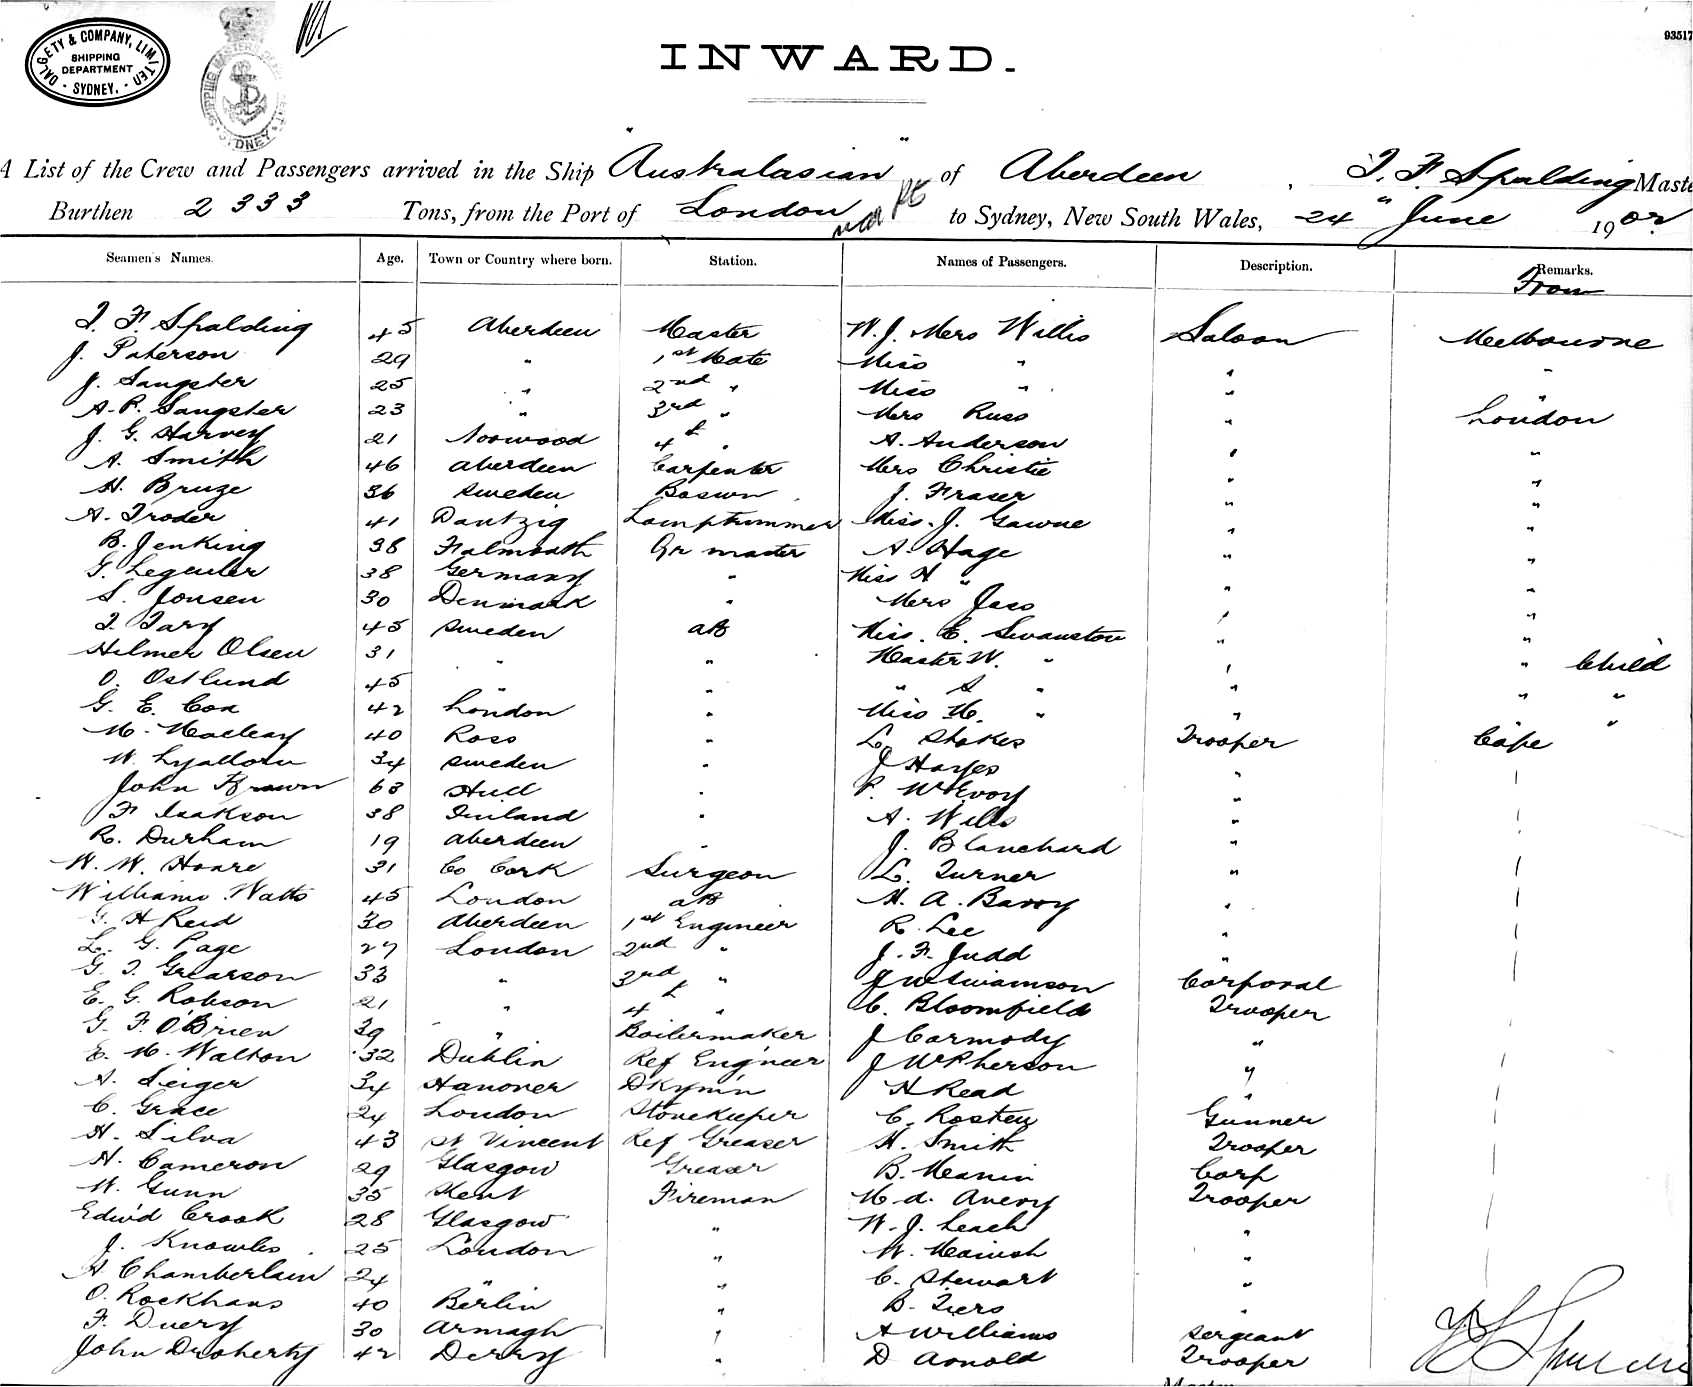 DALGETY & COMPANY, LIMITED
SHIPPING
DEPARTMENT
SYDNEY.
SYDNEY
93517
INWARD.
A List of the Crew and Passengers arrived in the Ship "Australasian" of Aberdeen, T. F. Spalding Maste
Burthen 2333 Tons, from the Port of London to Sydney, New South Wales, 24" June 1902
Seamen's Names. Age. Town or Country where born. Station. Names of Passengers. Description. Remarks.
From
T. F. Spalding 45 Aberdeen Master W. J. Mrs Willis Saloon Melbourne
J. Paterson 29 " 1st Mate Miss " " "
J. Sangster 25 " 2nd " Miss " " "
A. P. Sangster 23 " 3rd " Mrs Russ " London
J. G. Harvey 21 Norwood 4th " A. Anderson " "
A. Smith 46 Aberdeen Carpenter Mrs Christie " "
H. Bruze 36 Sweden Boswn J. Fraser " "
A. Troder 41 Dantzig Lamptrimmer Miss. J. Gawne " "
B. Jenking 38 Falmouth Qr master A. Hage " "
38 Germany " Miss H " " "
S. Jonsen 30 Denmark " Mrs Jass " "
T. Tary 45 Sweden AB Miss. E. Swanston " "
Hilmer Olsen 31 " " Master W. " " " Child
O. Ostlund 45 " " " S " " " "
G. E. Cox 42 London " Miss M. " " "
M. Macleay 40 Ross " L. Stokes Trooper Cape
34 Sweden " J Hayes "
John Brown 63 Hull " P. McEvoy "
F Isakson 38 Finland " A. Wills "
R. Durham 19 Aberdeen " J. Blanchard "
W. W. Hoare 31 Co Cork Surgeon L. Turner "
Williams Watts 45 London AB H. A. Barry "
G. H Reid 30 Aberdeen 1st Engineer R. Lee "
L. G. Page 27 London 2nd " J. F. Judd "
G. T. Grearson 33 " 3rd " J Corporal
E. G. Robson 21 " 4th " C. Bloomfield Trooper
G. F. O'Brien 39 " Boilermaker J Carmody "
E. M. Walton 32 Dublin Ref Engineer J McPherson "
A. Seiger 34 Hanover Dkymn H Read "
C. Grace 24 London Storekeeper C. Rosten Gunner
H. Silva 43 St Vincent Ref Greaser H. Smith Trooper
H. Cameron 29 Glasgow Greaser B. Corp
W. Gunn 35 Kent Fireman M. d. Avery Trooper
Edwd Crook 28 Glasgow " W. J. Leach "
J. Knowles 25 London " W. "
A Chamberlain 24 " " C. Stewart "
O. Rockhans 40 Berlin " B. Tiers "
F. Duery 30 Armagh " A Williams Sergeant
John Droherty 42 Derry " D Arnold Trooper